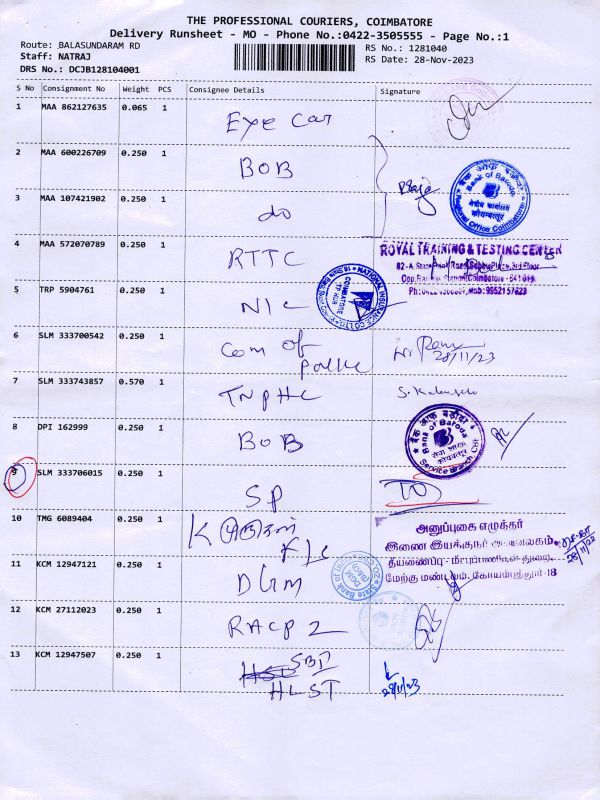 THE PROFESSIONAL COURIERS, COIMBATORE
Delivery Runsheet - MO - Phone No.:0422-3505555 - Page No.:1
Route: BALASUNDARAM RD
RS No.: 1281040
Staff: NATRAJ
RS Date: 28-Nov-2023
DRS No.: DCJB128104001
S No Consignment No Weight PCS Consignee Details Signature
1 MAA 862127635 0.065 1 Eye Car
2 MAA 600226709 0.250 1 BOB
बैंक ऑफ़ बड़ौदा
Bank of Baroda
क्षेत्रीय कार्यालय
कोयम्बत्तूर
Regional Office Coimbatore
3 MAA 107421902 0.250 1 do
4 MAA 572070789 0.250 1 RTTC
ROYAL TRAINING & TESTING CENTER
5 TRP 5904761 0.250 1 NIC
NATIONAL INSURANCE CO LTD
COIMBATORE
6 SLM 333700542 0.250 1 Com of Police
28/11/23
7 SLM 333743857 0.570 1 TNPHC
8 DPI 162999 0.250 1 BOB
बैंक ऑफ़ बड़ौदा
Bank of Baroda
सेवा शाखा
कोयम्बत्तूर
Service Branch CBE
9 SLM 333706015 0.250 1 SP
10 TMG 6089404 0.250 1 K
அனுப்புகை எழுத்தர்
இணை இயக்குநர் அலுவலகம்,
தீயணைப்பு - மீட்புபணிகள் துறை,
மேற்கு மண்டலம், கோயம்புத்தூர்-18
28/11/23
11 KCM 12947121 0.250 1 DGM
State Bank of India
12 KCM 27112023 0.250 1 RACP 2
13 KCM 12947507 0.250 1 SBI
HLST
28/11/23